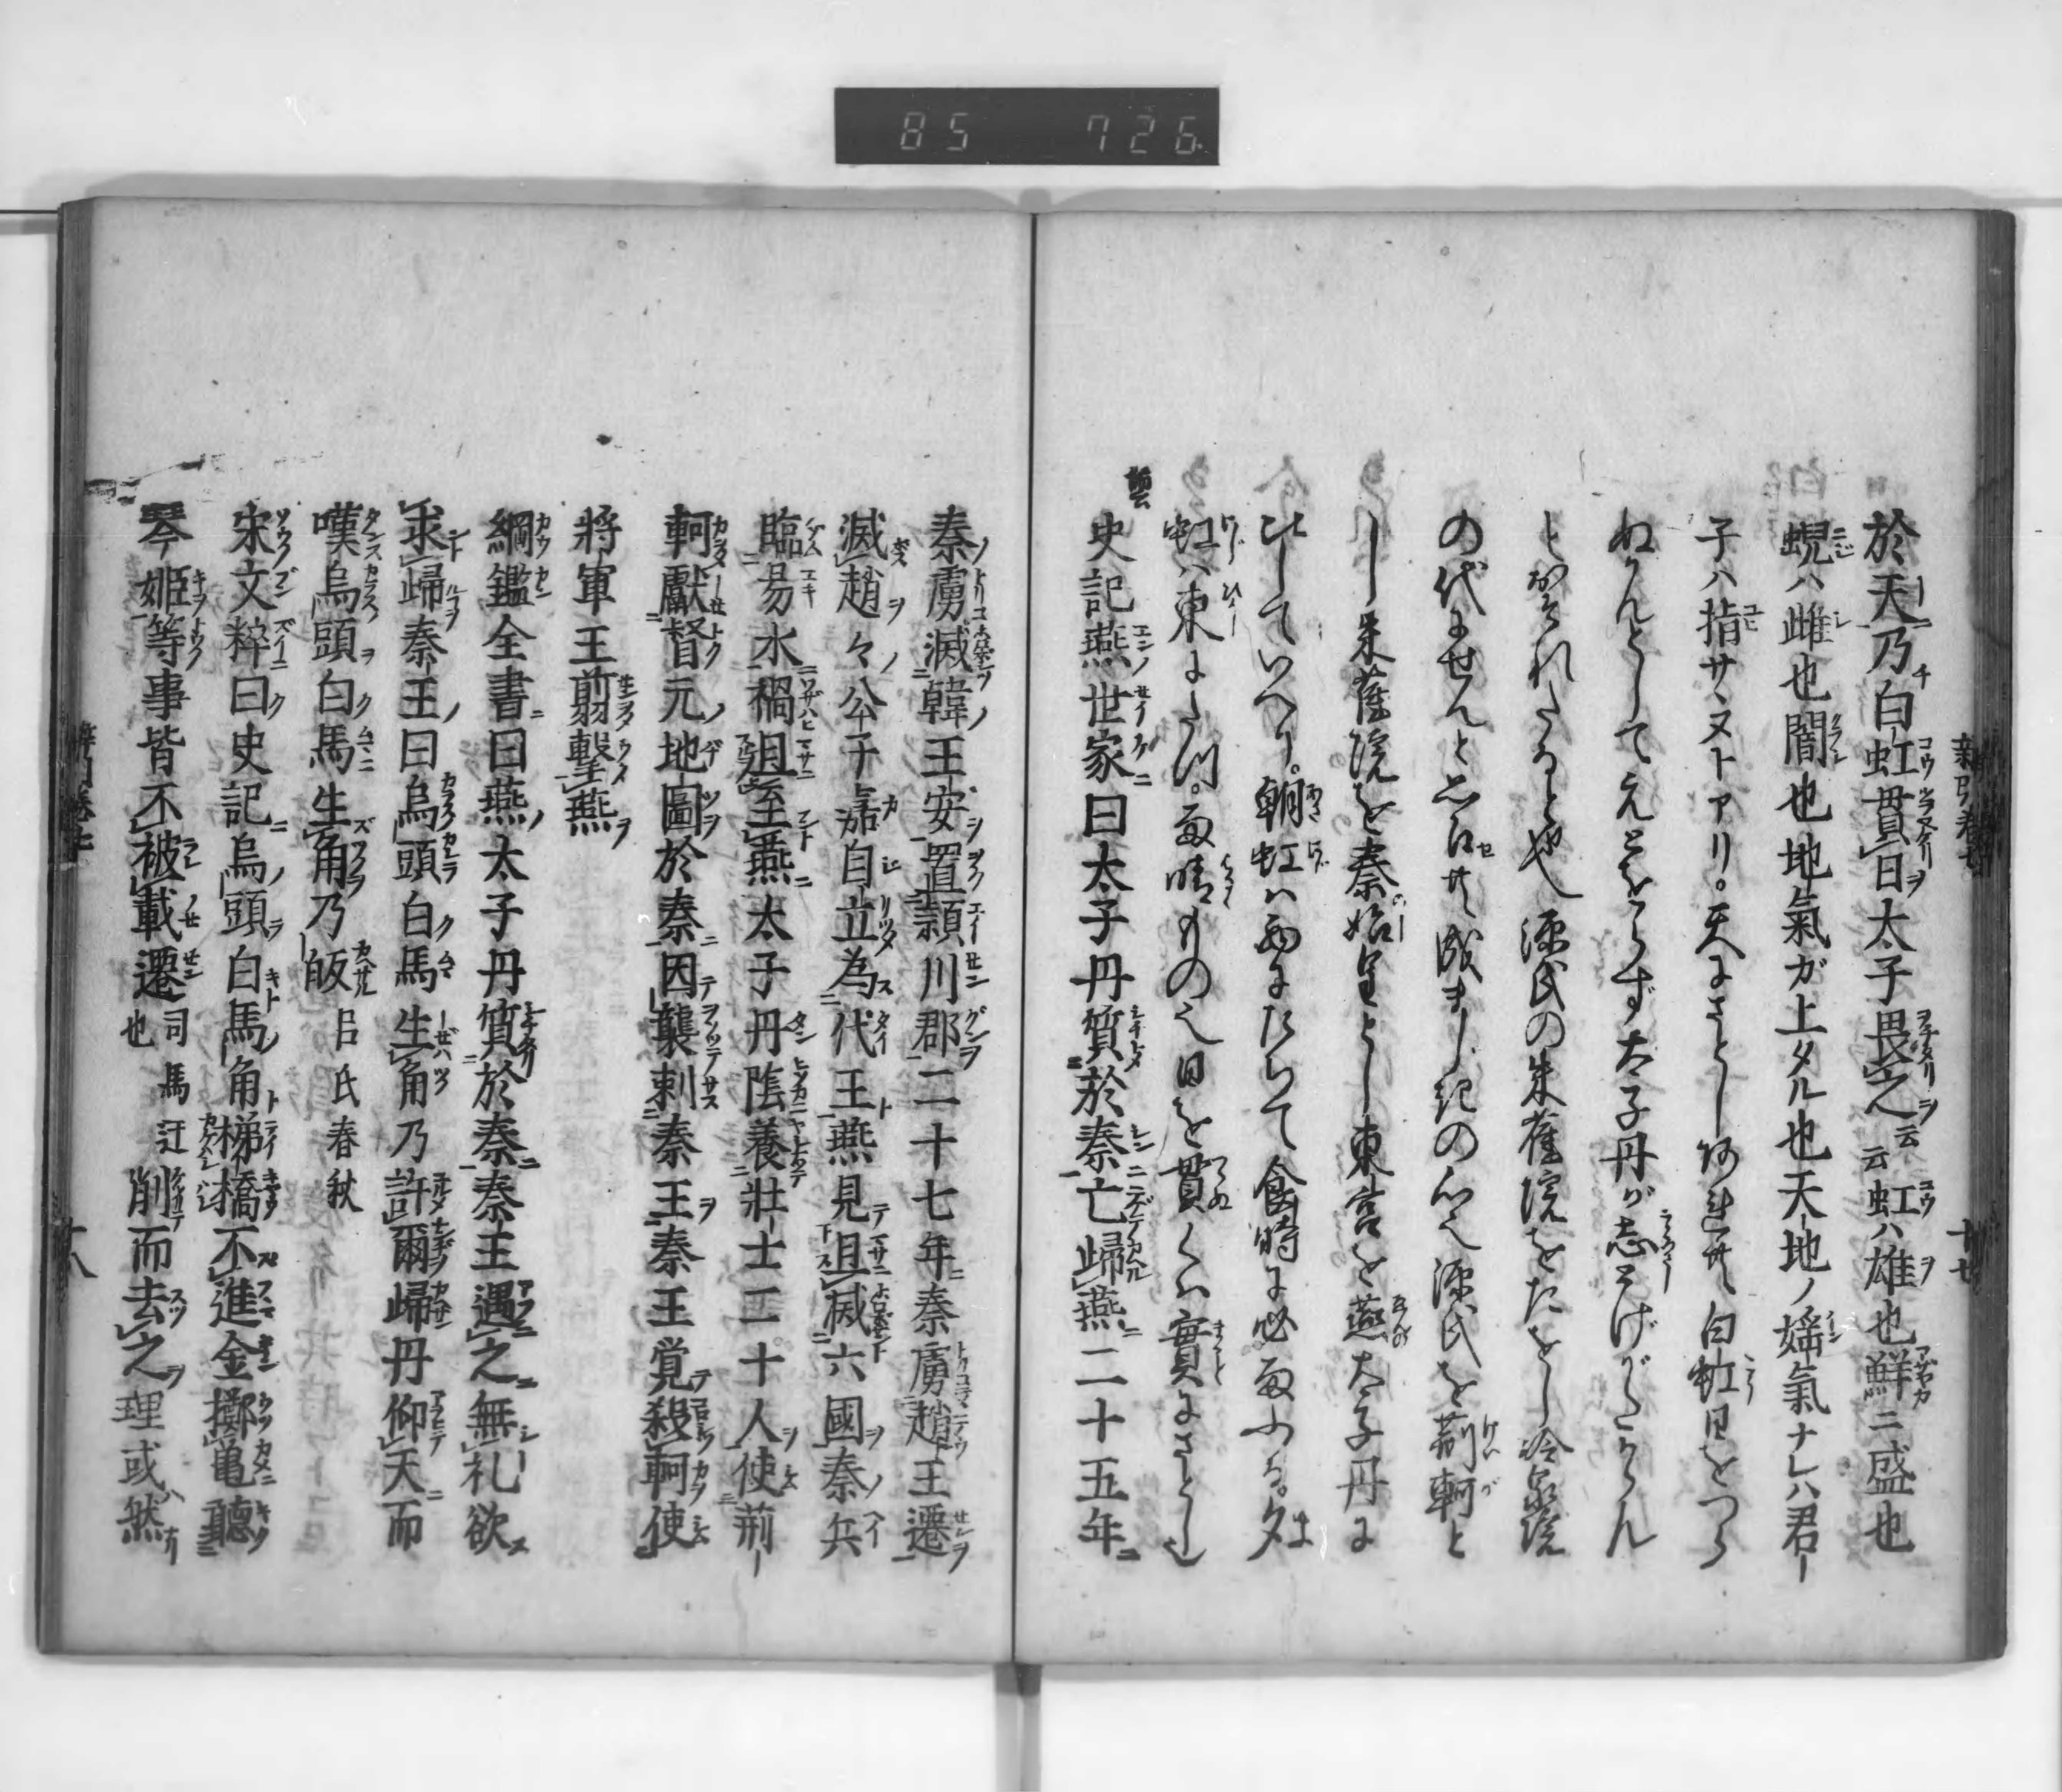 85 726
於天乃白虹貫日太子畏之云云虹ハ雄也鮮ニ盛也
蜺ハ雌也闇也地氣ガ上タル也天地ノ婬氣ナレハ君
子ハ指サヽヌトアリ。天よさとし
白虹日をつら
ぬかんとしてえとをらず太子丹が志とげがたからん
とおそれたると也源氏の朱雀院をたをし冷泉院
の代よせんと
源氏を荊軻と
し朱雀院を秦始皇とし東宮を燕太子丹よ
ひしていへり。朝虹ハ西よたちて食時よ必雨ふる。夕
虹ハ東よたつ。雨晴もの也日を貫くハ實よさとし也
史記燕世家曰太子丹質於秦亡歸燕二十五年
秦虜滅韓王安置潁川郡二十七年秦虜趙王遷
滅趙々公子嘉自立為代王燕見且滅六國秦兵
臨易水禍且至燕太子丹陰養壯士二十人使荊
軻獻督元地圖於秦因襲刺秦王秦王覚殺軻使
將軍王翦擊燕
綱鑑全書曰燕太子丹質於秦秦王遇之無礼欲
求歸秦王曰烏頭白馬生角乃許爾歸丹仰天而
嘆烏頭白馬生角乃皈 呂氏春秋
宋文粹曰史記烏頭白馬角梯橋不進金擲亀聽
琴姫等事皆不被載遷司馬迁也削而去之理或然
十八